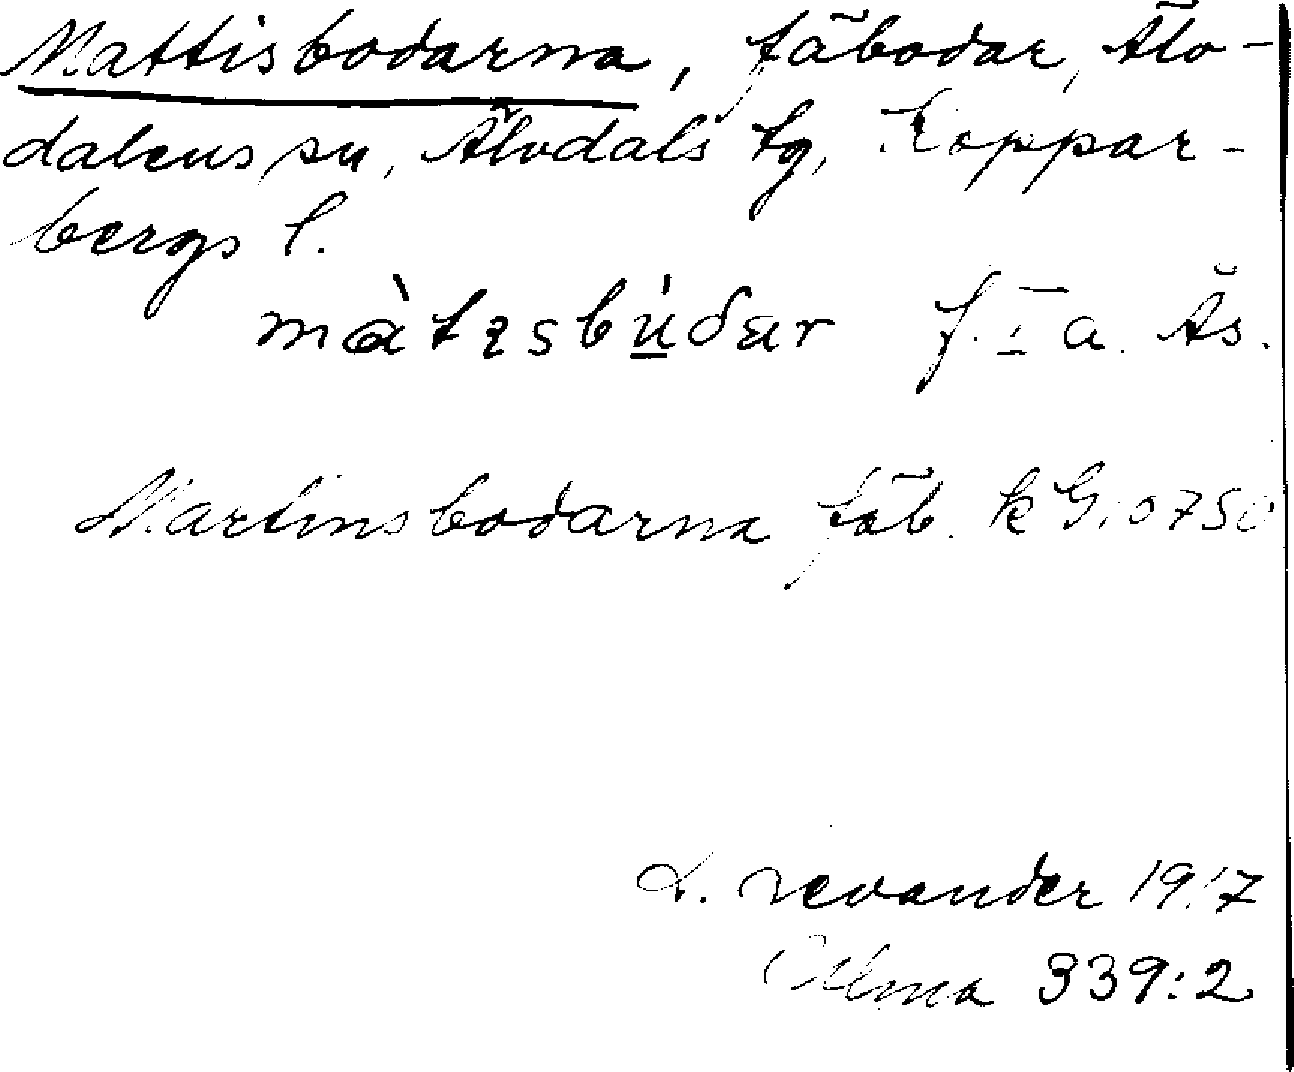 Mattisbodarna, fäbodar, Älv-
dalens sn, Älvdals tg, Koppar-
bergs l.
màtɪsbú̲dar f. I a. Ås.
Martinsbodarna fäb. k G: 0750
L. Levander 1917
Ulma 339:2